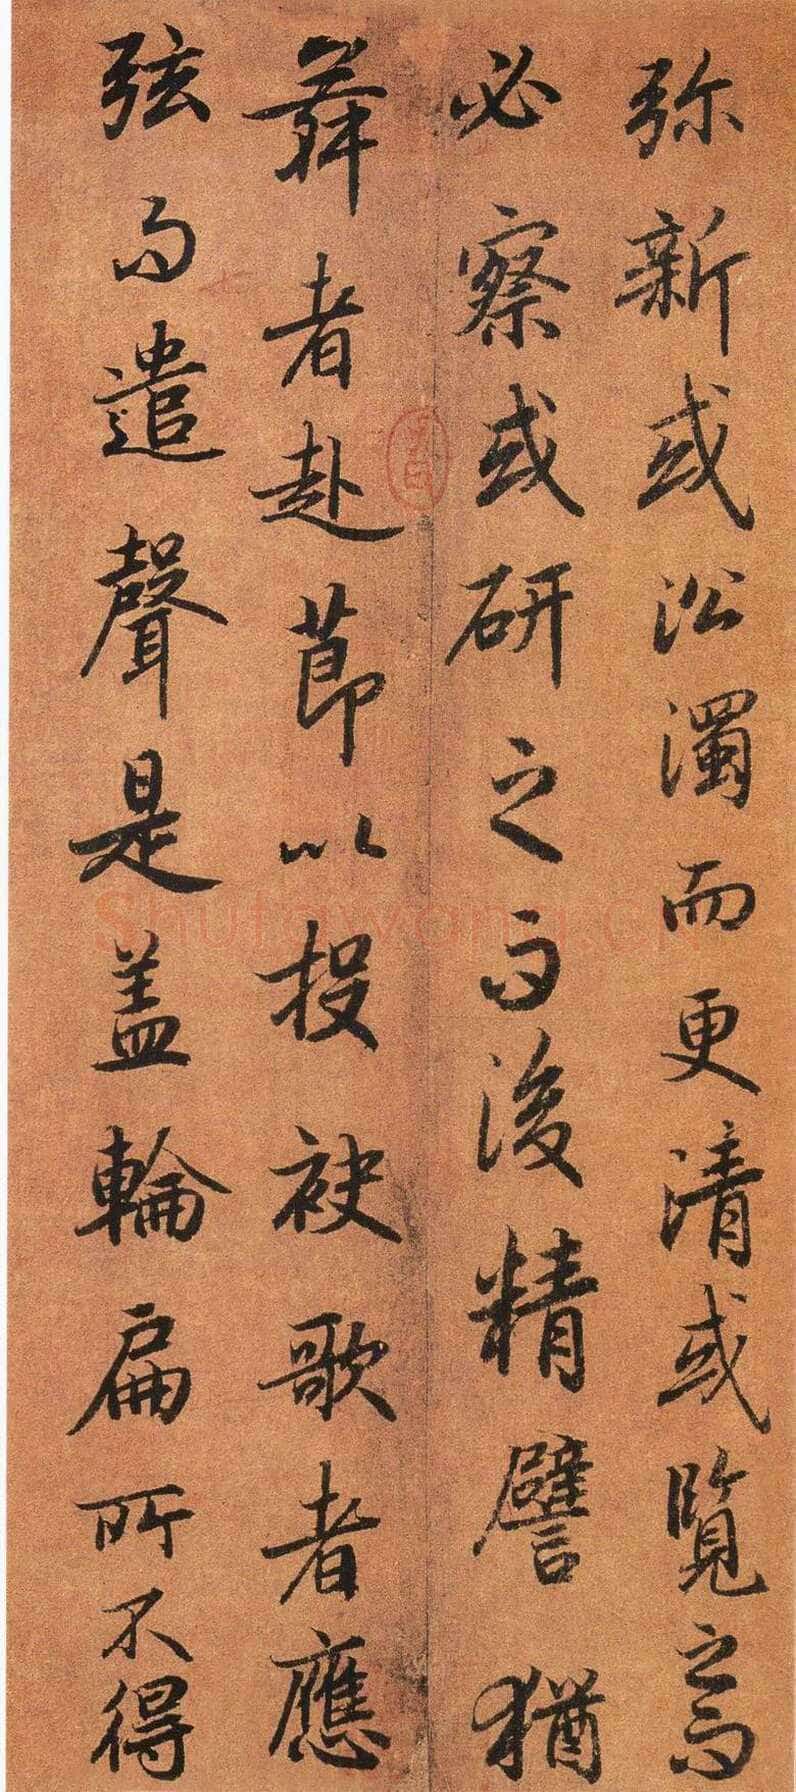 弥新或沿濁而更清或覽之而
必察或研之而後精譬猶
舞者赴莭以投袂歌者應
弦而遣聲是盖輪扁所不得
Shufawang.cn